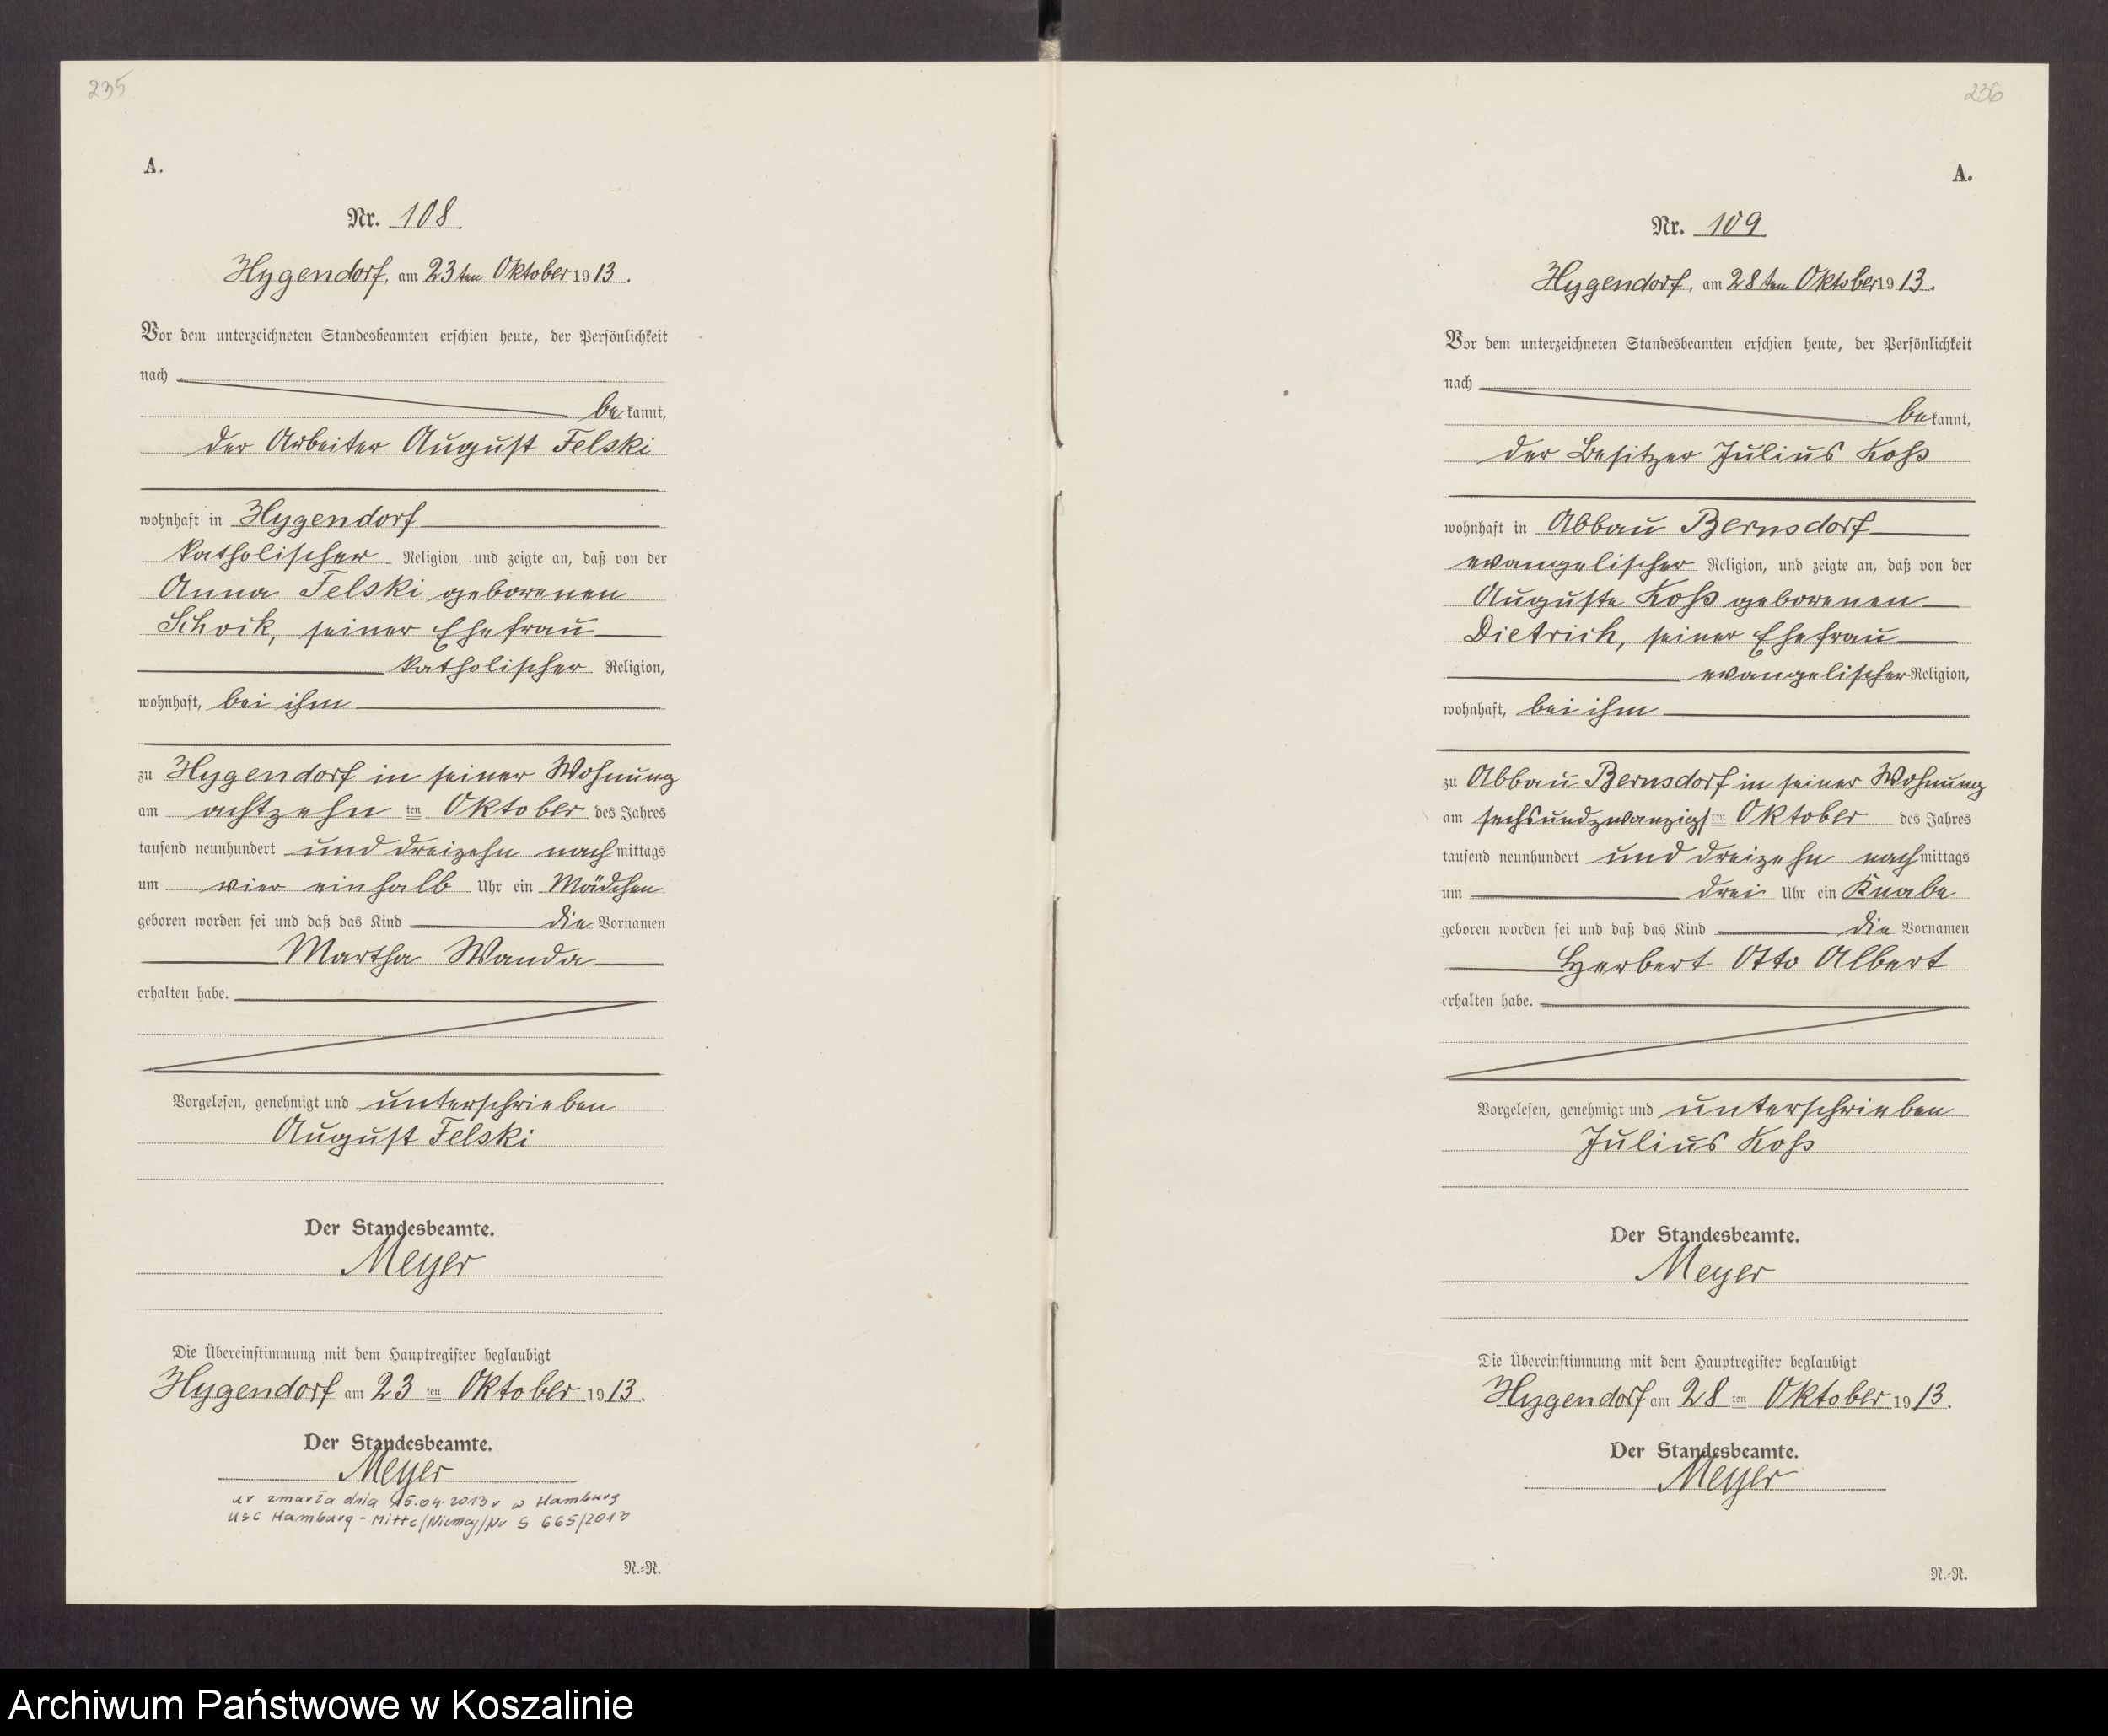 235
A.
Nr. 108
Hygendorf, am 23ten Oktober 1913.
Vor dem unterzeichneten Standesbeamten erschien heute, der Persönlichkeit
nach
bekannt,
der Arbeiter August Felski
wohnhaft in Hygendorf
katholischer Religion, und zeigte an, daß von der
Anna Felski geborenen
Schock, seiner Ehefrau
katholischer Religion,
wohnhaft, bei ihm
zu Hygendorf in seiner Wohnung
am achtzehn ten Oktober des Jahres
tausend neunhundert und dreizehn nachmittags
um vier einhalb Uhr ein Mädchen
geboren worden sei und daß das Kind die Vornamen
Martha Wanda
erhalten habe.
Vorgelesen, genehmigt und unterschrieben
August Felski
Der Standesbeamte.
Meyer
Die Übereinstimmung mit dem Hauptregister beglaubigt
Hygendorf am 23 ten Oktober 1913.
Der Standesbeamte.
Meyer
zmarła dnia 15.04.2013 r w Hamburg
USC Hamburg-Mitte/Niemcy/Nr S 665/2013
N.-R.
236
A.
Nr. 109
Hygendorf, am 28ten Oktober 1913.
Vor dem unterzeichneten Standesbeamten erschien heute, der Persönlichkeit
nach
bekannt,
der Besitzer Julius Koß
wohnhaft in Abbau Bernsdorf
evangelischer Religion, und zeigte an, daß von der
Auguste Koß geborenen
Dietrich, seiner Ehefrau
evangelischer Religion,
wohnhaft, bei ihm
zu Abbau Bernsdorf in seiner Wohnung
am sechsundzwanzigsten Oktober des Jahres
tausend neunhundert und dreizehn nachmittags
um drei Uhr ein Knabe
geboren worden sei und daß das Kind die Vornamen
Herbert Otto Albert
erhalten habe.
Vorgelesen, genehmigt und unterschrieben
Julius Koß
Der Standesbeamte.
Meyer
Die Übereinstimmung mit dem Hauptregister beglaubigt
Hygendorf am 28 ten Oktober 1913.
Der Standesbeamte.
Meyer
N.-R.
Archiwum Państwowe w Koszalinie